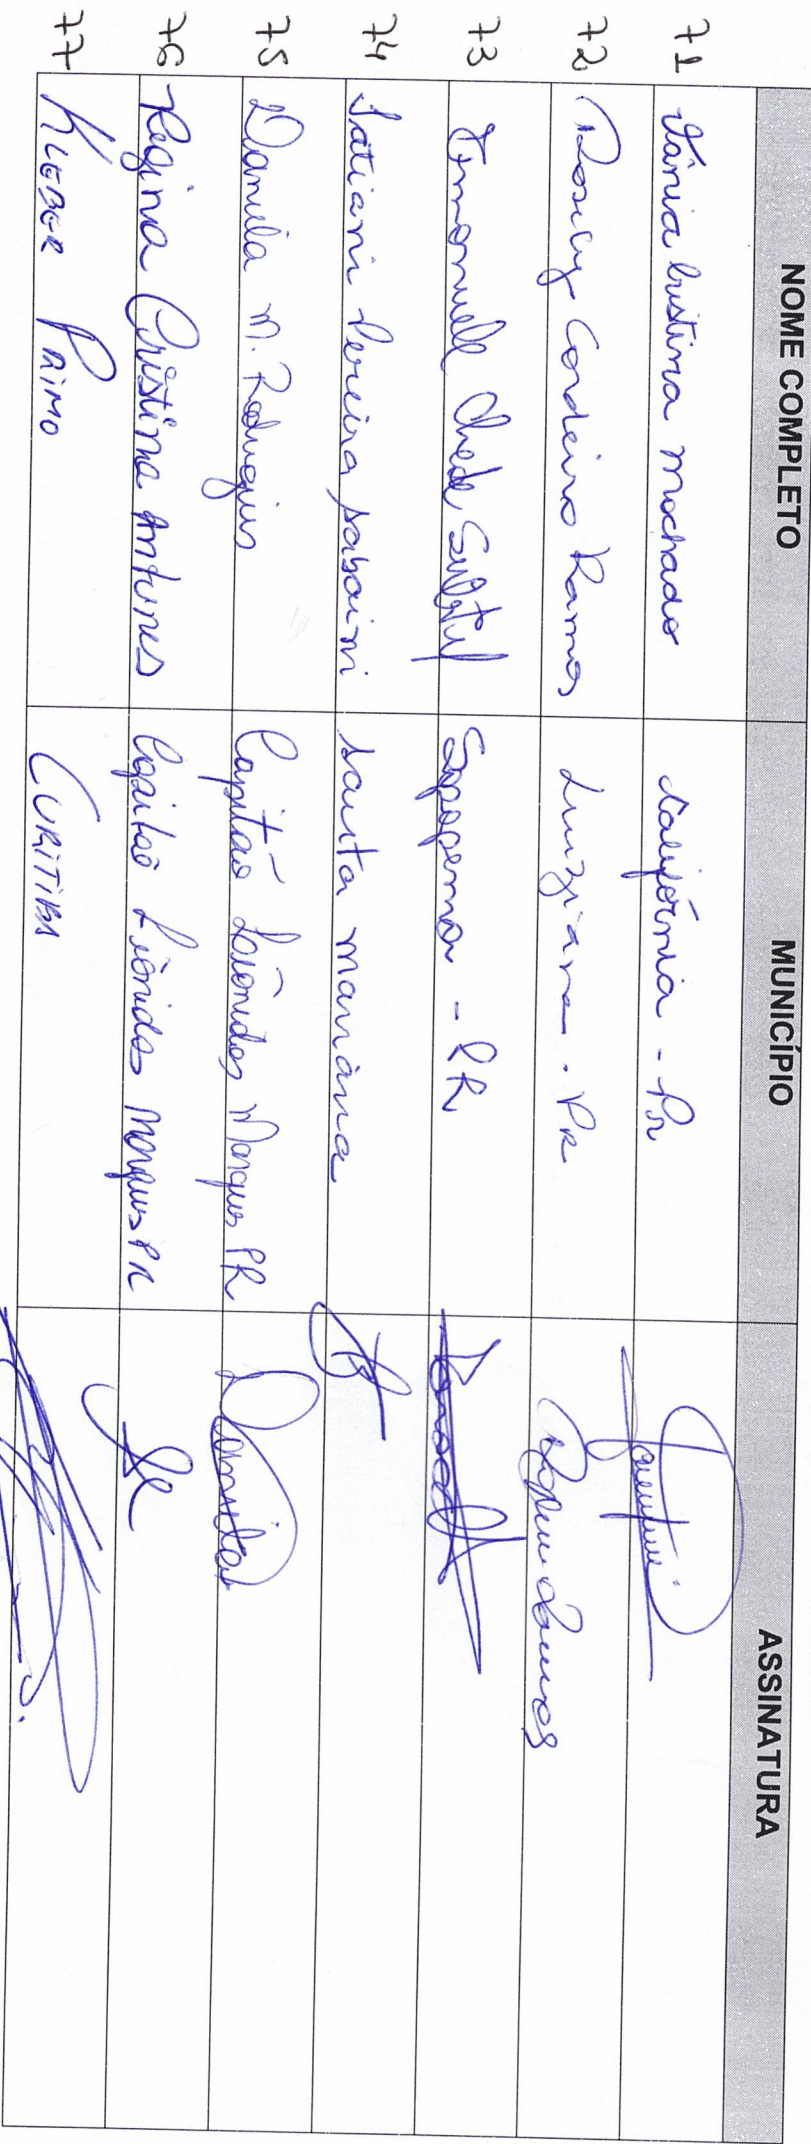 NOME COMPLETO MUNICÍPIO ASSINATURA
71 Vânia Cristina Machado Califórnia - Pr
72 Rosely Cordeiro Ramos Luiziana - PR
73 Emanuelle Chede Sapopema - PR
74 Tatiani Pereira Santa Mariana
75 Daniela M. Rodrigues Capitão Leônidas Marques PR Daniela
76 Regina Cristina Antunes Capitão Leônidas Marques PR
77 KLEBER PRIMO CURITIBA